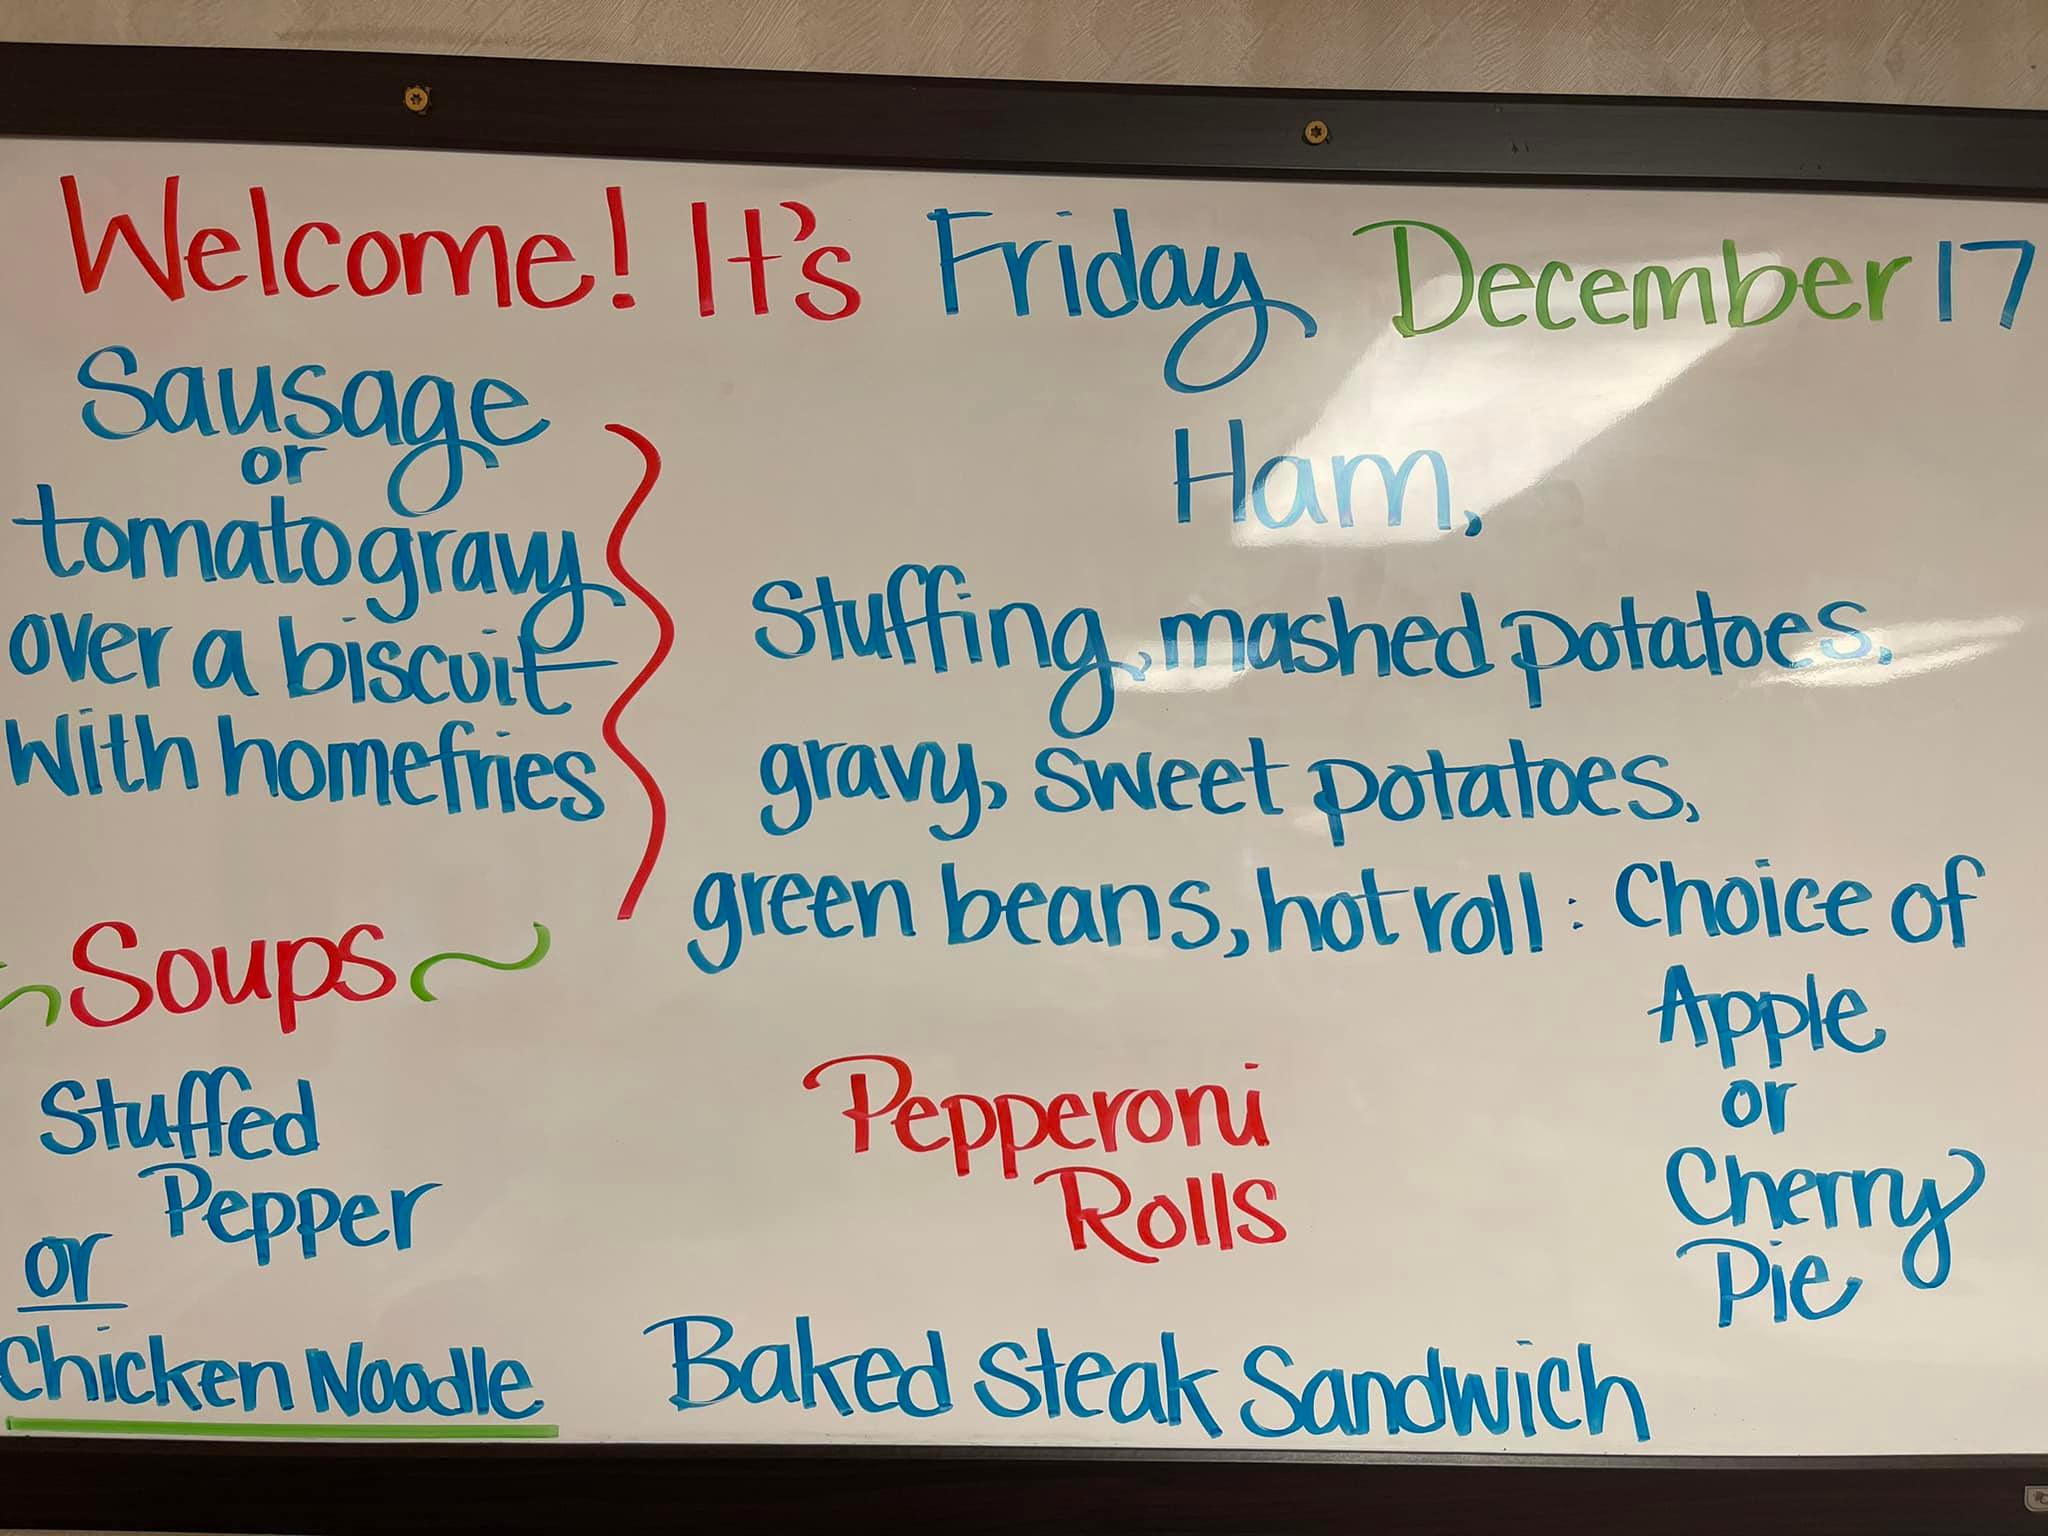 Welcome! It's Friday December 17
Sausage
or
tomato gravy
over a biscuit
with homefries
Soups
Stuffed
Pepper
or
Chicken Noodle
Ham,
Stuffing, mashed potatoes,
gravy, sweet potatoes,
green beans, hot roll : Choice of
Apple
or
Cherry
Pie
Pepperoni
Rolls
Baked Steak Sandwich